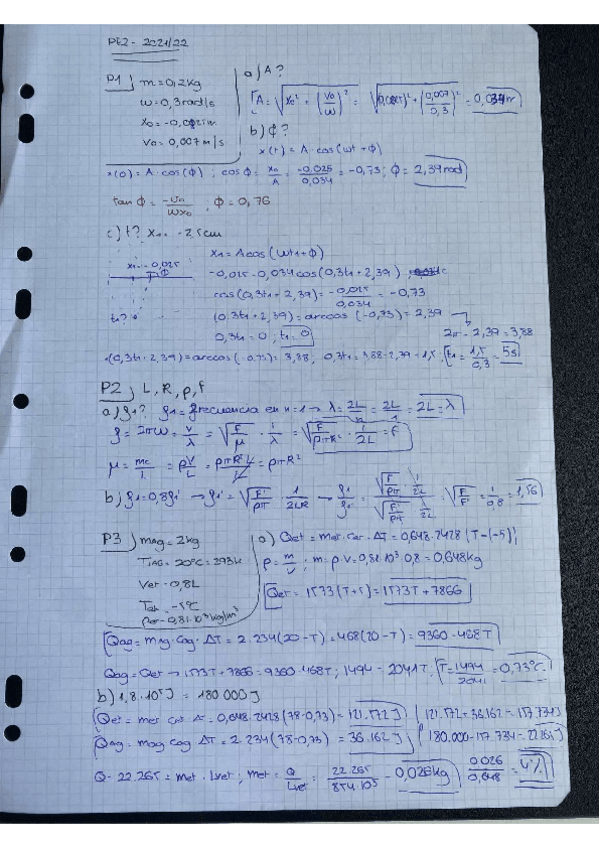 PE2 - 2021/22
P1) m = 0,2kg
ω = 0,3rad/s
x0 = -0,025m
v0 = 0,007 m/s
a) A?
A = √(x0² + (v0/ω)²) = √(0,025² + (0,007/0,3)²) = 0,034m
b) φ?
x(t) = A · cos(ωt + φ)
x(0) = A · cos(φ) ; cos φ = x0/A = -0,025/0,034 = -0,73 ; φ = 2,39rad
tan φ = -v0/ωx0 ; φ = 0,76
c) t? x1 = -2,5cm
x1 = -0,025
x1 = A cos(ωt1 + φ)
-0,025 = 0,034 cos(0,3t1 + 2,39)
cos(0,3t1 + 2,39) = -0,025/0,034 = -0,73
t1?
(0,3t1 + 2,39) = arccos(-0,73) = 2,39
2π - 2,39 = 3,88
0,3t1 = 0 ; t1 = 0
(0,3t1 + 2,39) = arccos(-0,73) = 3,88 ; 0,3t1 = 3,88 - 2,39 = 1,5 ; t1 = 1,5/0,3 = 5s
P2) L, R, ρ, F
a) f1? f1 = frecuencia en n = 1 → λ = 2L/n = 2L/1 = 2L = λ
f = 2πω = v/λ = √(F/μ) · 1/λ = √(F/ρπR²) · 1/2L = f
μ = mc/L = ρV/L = ρπR²L/L = ρπR²
b) f1 = 0,8f1' → f1' = √(F'/ρπ) · 1/2LR → f1/f1' = √(F/ρπ) 1/2L / √(F'/ρπ) 1/2L = √(F/F') = 1/0,8 = 1,56
P3) mAg = 2kg
TiAg = 20°C = 293k
Vet = 0,8L
Tet = -5°C
ρet = 0,81·10³kg/m³
a) Qet = met · cet · ΔT = 0,648 · 2428 (T - (-5));
ρ = m/V ; m = ρ · V = 0,81·10³ · 0,8 = 0,648kg
Qet = 1573 (T+5) = 1573T + 7866
Qag = mAg · Cag · ΔT = 2 · 234 (20 - T) = 468 (20 - T) = 9360 - 468T
Qag = Qet → 1573T + 7866 = 9360 - 468T ; 1494 = 2041T ; T = 1494/2041 = 0,73°C
b) 1,8·10⁵J = 180000J
Qet = met cet ΔT = 0,648 · 2428 (78 - 0,73) = 121.572J
121.572 - 36.162 = 117.734J
QAg = mag Cag ΔT = 2 · 234 (78 - 0,73) = 36.162J
180.000 - 117.734 = 22265J
Q = 22.265 = met · Lvet ; met = Q/Lvet = 22.265/854·10³ = 0,026kg
0,026/0,648 = 4%